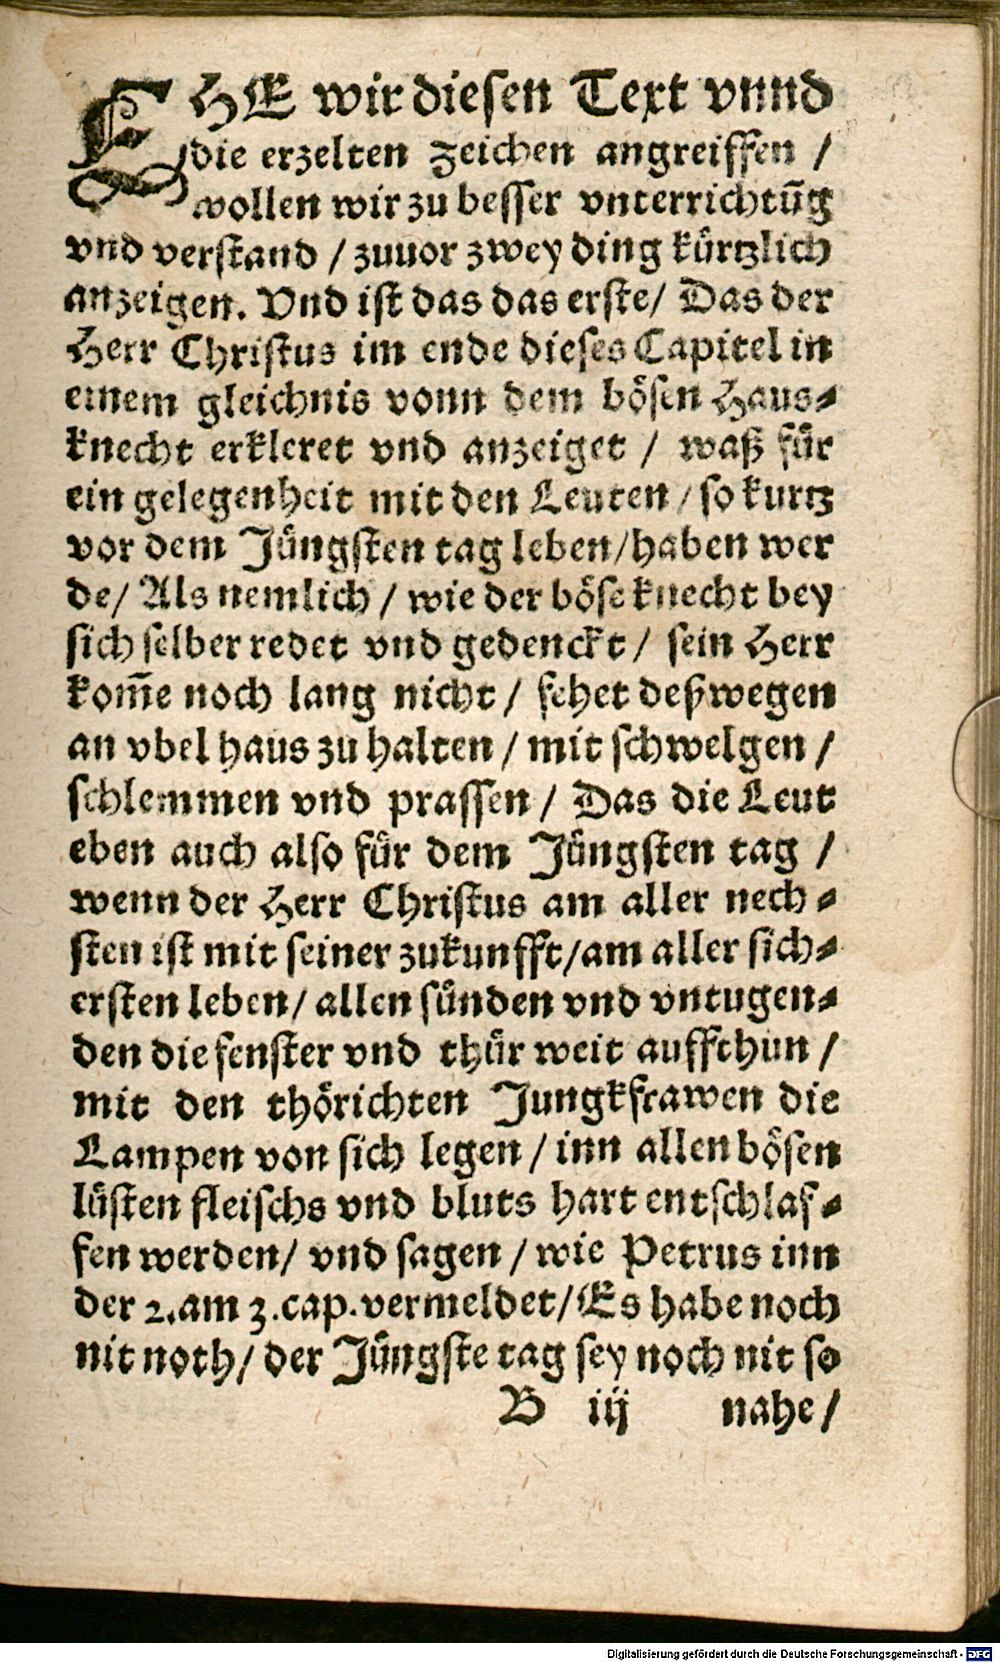 EHE wir diesen Text vnnd
die erzelten zeichen angreiffen /
wollen wir zu besser vnterrichtūg
vnd verstand / zuuor zwey ding kürtzlich
anzeigen. Vnd ist das das erste / Das der
Herr Christus im ende dieses Capitel in
einem gleichnis vonn dem bösen Haus-
knecht erkleret vnd anzeiget / waß für
ein gelegenheit mit den Leuten / so kurtz
vor dem Jüngsten tag leben / haben wer
de / Als nemlich / wie der böse knecht bey
sich selber redet vnd gedenckt / sein Herr
kom̄e noch lang nicht / fehet deßwegen
an vbel haus zu halten / mit schwelgen /
schlemmen vnd prassen / Das die Leut
eben auch also für dem Jüngsten tag /
wenn der Herr Christus am aller nech-
sten ist mit seiner zukunfft / am aller sich-
ersten leben / allen sünden vnd vntugen-
den die fenster vnd thür weit auffthun /
mit den thörichten Jungkfrawen die
Lampen von sich legen / inn allen bösen
lüsten fleischs vnd bluts hart entschlaf-
fen werden / vnd sagen / wie Petrus inn
der 2. am 3. cap. vermeldet / Es habe noch
nit noth / der Jüngste tag sey noch nit so
B iij nahe /
Digitalisierung gefördert durch die Deutsche Forschungsgemeinschaft - DFG